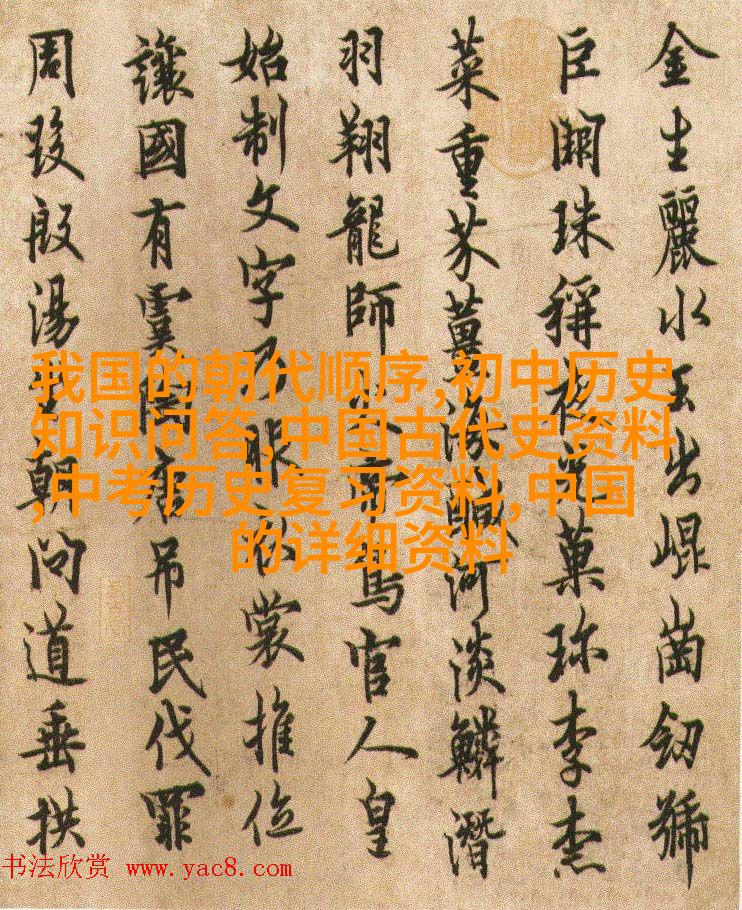 金生麗水玉出崐崗釰號
巨闕珠稱夜光菓珎李柰
菜重芥薑海醎河淡鱗潛
羽翔龍師火帝鳥官人皇
始制文字乃服衣裳推位
讓國有虞陶唐吊民伐罪
周發殷湯坐朝問道垂拱
我国的朝代顺序,初中历史
知识问答,中国古代史资料
,中考历史复习资料,中国
的详细资料
书法欣赏 www.yac8.com